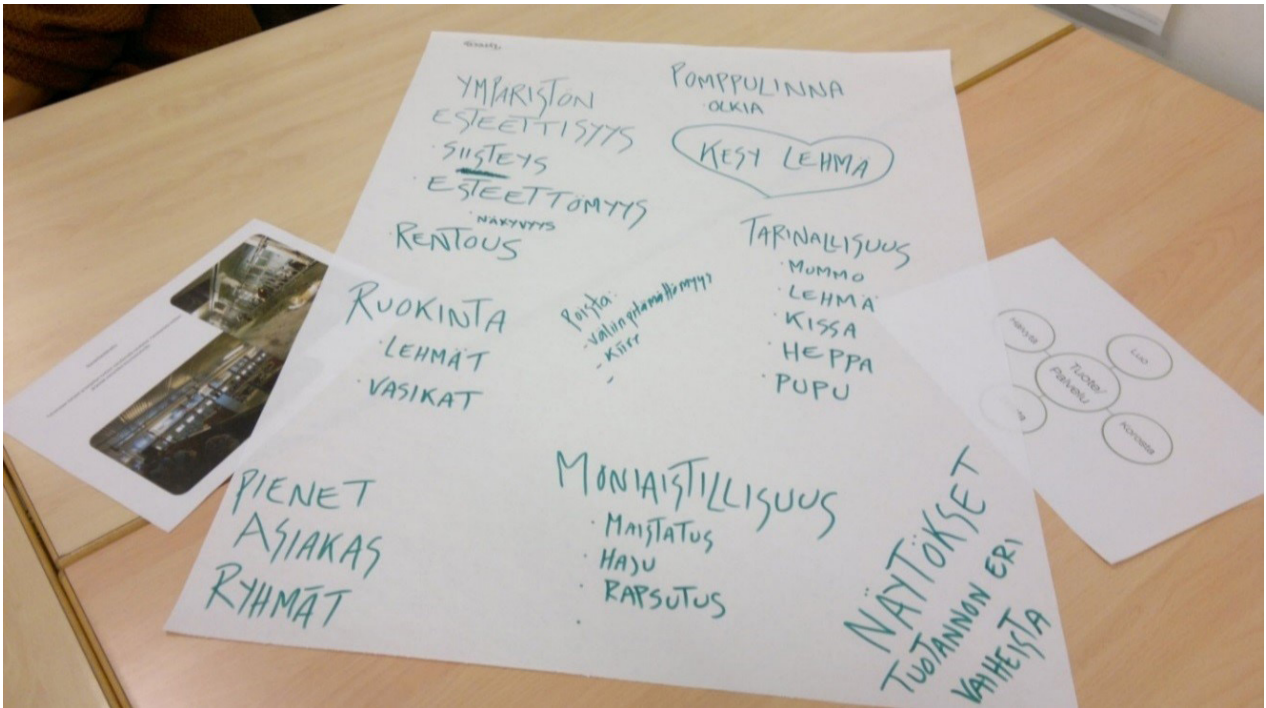 YMPÄRISTÖN
ESTEETTISYYS
· SIISTEYS
· ESTEETTÖMYYS
· NÄKYVYYS
RENTOUS
POMPPULINNA
· OLKIA
KESY LEHMÄ
TARINALLISUUS
· MUMMO
· LEHMÄ
· KISSA
· HEPPA
· PUPU
RUOKINTA
· LEHMÄT
· VASIKAT
Poista:
- välinpitämättömyys
- kiire
-
PIENET
ASIAKAS
RYHMÄT
MONIAISTILLISUUS
· MAISTATUS
· HAJU
· RAPSUTUS
·
NÄYTÖKSET
TUOTANNON ERI
VAIHEISTA
Hävitä
Luo
Tuote/
Palvelu
Korosta